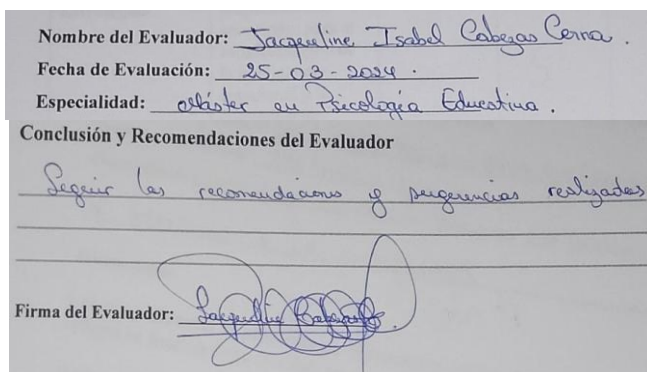 Nombre del Evaluador: Jacqueline Isabel Cabezas Cerna.
Fecha de Evaluación: 25-03-2024.
Especialidad: Máster en Psicología Educativa.
Conclusión y Recomendaciones del Evaluador
Seguir las recomendaciones y sugerencias realizadas
Firma del Evaluador: Jacqueline Cabezas